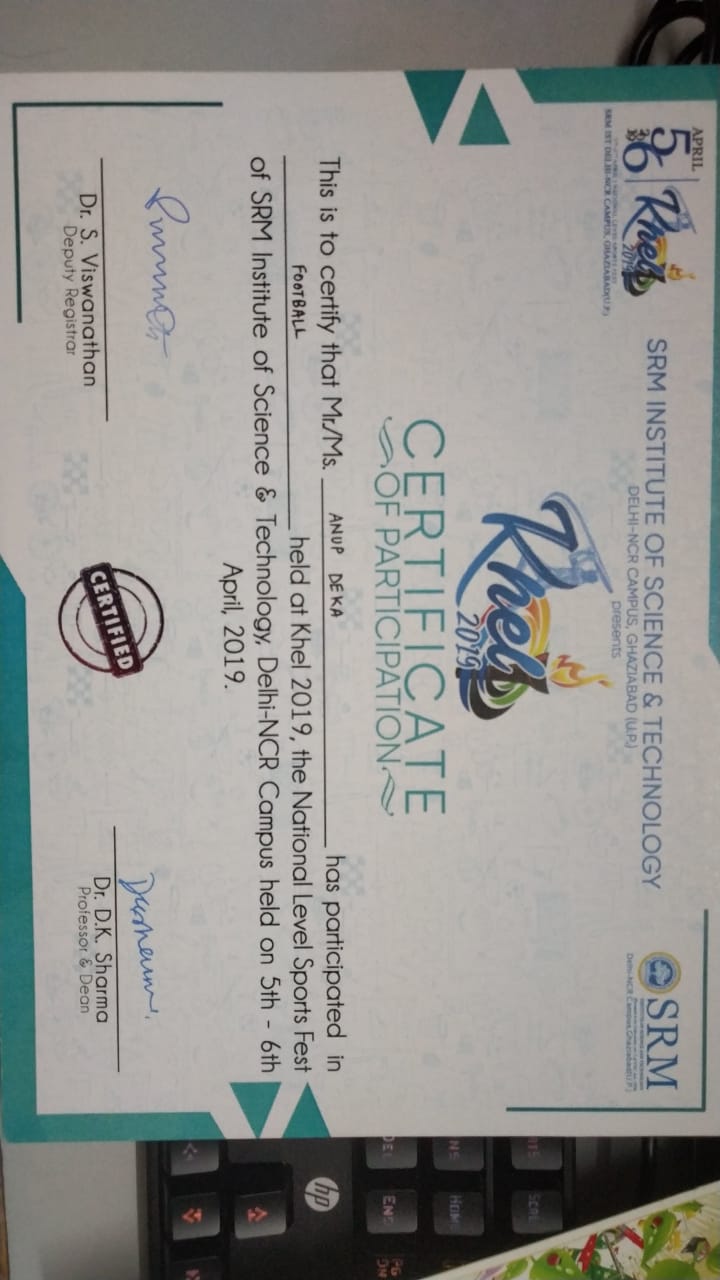 APRIL
5
6
2019
Khel
2019
5TH-6TH APRIL | NATIONAL LEVEL SPORTS FEST
SRM IST DELHI-NCR CAMPUS, GHAZIABAD(U.P.)
SRM INSTITUTE OF SCIENCE & TECHNOLOGY
DELHI-NCR CAMPUS, GHAZIABAD (U.P.)
presents
SRM
INSTITUTE OF SCIENCE AND TECHNOLOGY
Delhi-NCR Campus,Ghaziabad(U.P.)
Khel
2019
CERTIFICATE
OF PARTICIPATION
This is to certify that Mr./Ms. ANUP DEKA has participated in
FOOTBALL held at Khel 2019, the National Level Sports Fest
of SRM Institute of Science & Technology, Delhi-NCR Campus held on 5th - 6th
April, 2019.
CERTIFIED
Dr. S. Viswanathan
Deputy Registrar
Dr. D.K. Sharma
Professor & Dean
HOME
END
hp